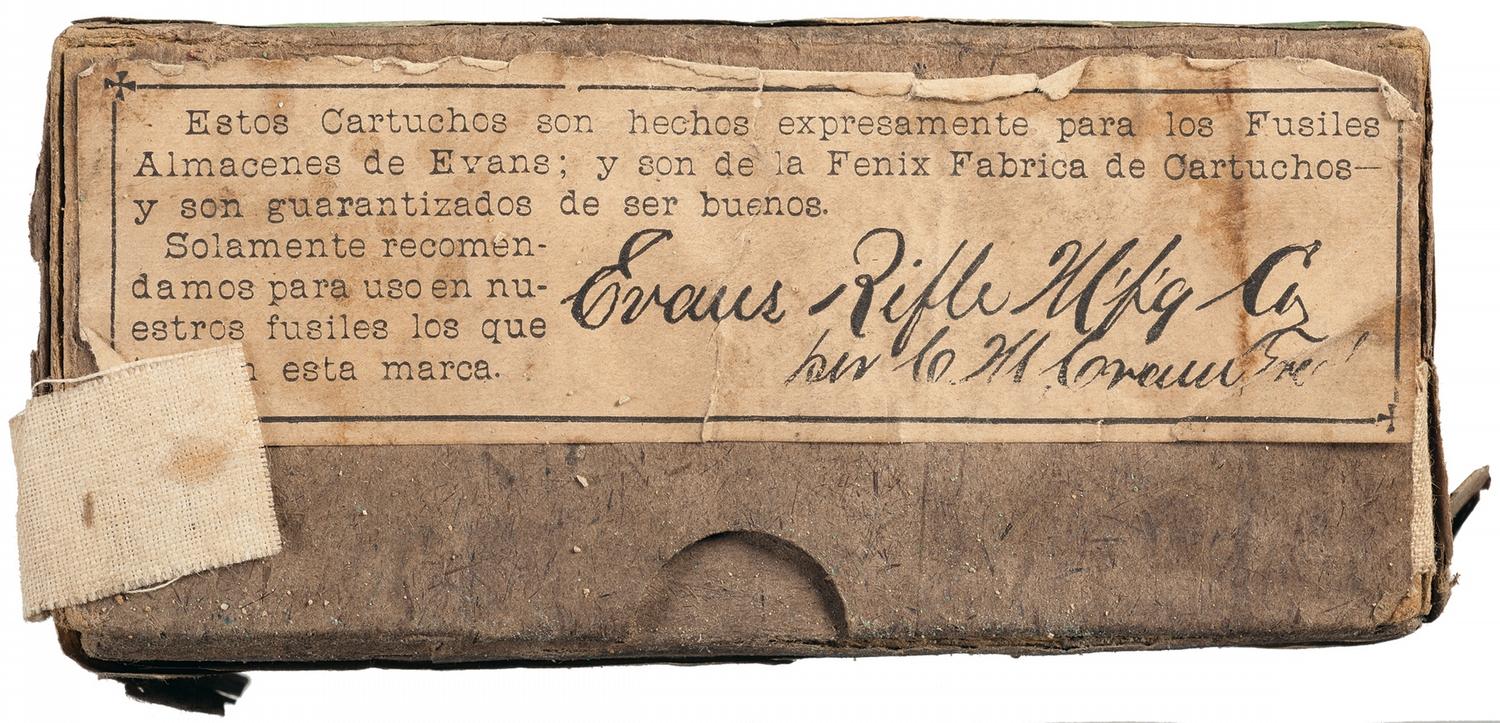 Estos Cartuchos son hechos expresamente para los Fusiles
Almacenes de Evans; y son de la Fenix Fabrica de Cartuchos—
y son guarantizados de ser buenos.
Solamente recomen-
damos para uso en nu-
estros fusiles los que
esta marca.
Evans Rifle Mf'g Co
per C M Evans